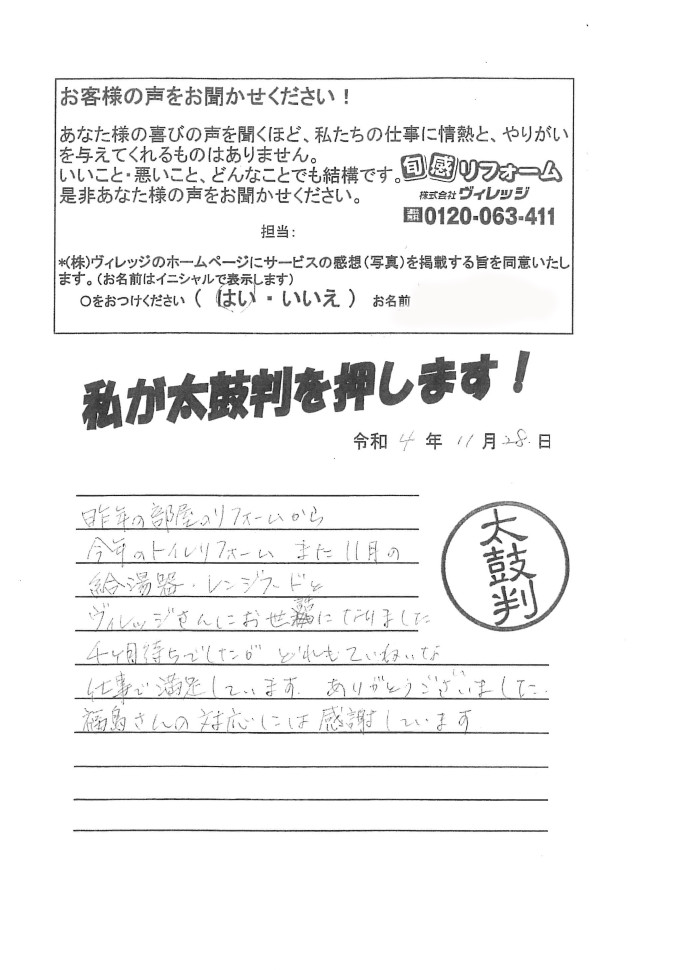 お客様の声をお聞かせください！
あなた様の喜びの声を聞くほど、私たちの仕事に情熱と、やりがい
を与えてくれるものはありません。
いいこと・悪いこと、どんなことでも結構です。
是非あなた様の声をお聞かせください。
旬感リフォーム
株式会社ヴィレッジ
0120-063-411
担当：
*(株)ヴィレッジのホームページにサービスの感想(写真)を掲載する旨を同意いたし
ます。(お名前はイニシャルで表示します)
〇をおつけください ( はい ・ いいえ ) お名前
私が太鼓判を押します！
令和 4 年 11 月 28 日
昨年の部屋のリフォームから
今年のトイレリフォーム また11月の
給湯器・レンジフードと
ヴィレッジさんにお世話になりました
ヶ月待ちでしたが どれもていねいな
仕事で満足しています ありがとうございました
福島さんの対応には感謝しています
太鼓判